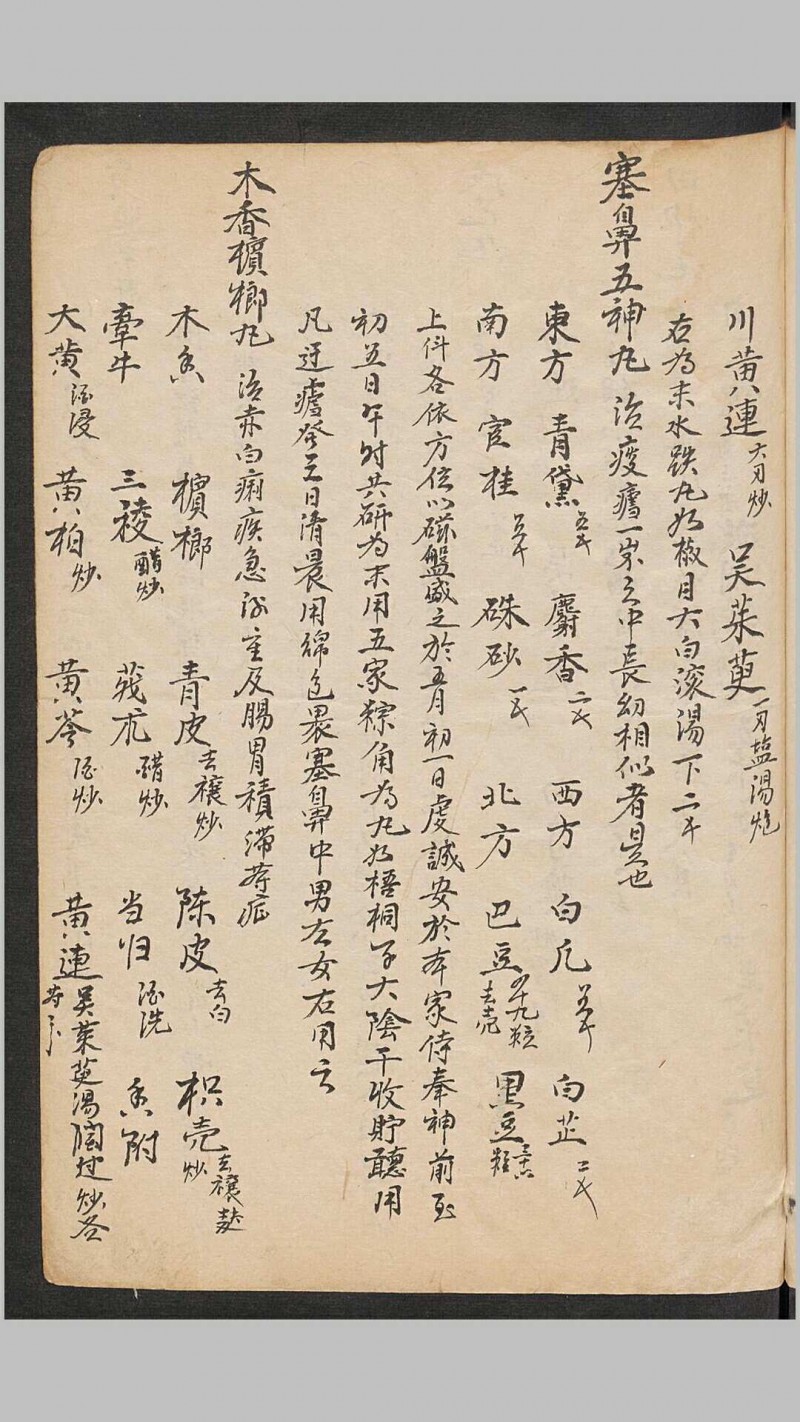 川黃連六刃炒 吴茱萸一刃塩湯炮
右為末水跌丸如椒目大白滚湯下二戋
塞鼻五神丸 治疫瘧一岁之中長幼相似者是也
東方 青黛五戋 麝香二戋 西方 白凡五戋 白芷二戋
南方 官桂五戋 硃砂一戋 北方 巴豆四十九粒去壳 黑豆粒
上件各依方位以磁盤盛之於五月初一日虔誠安於本家侍奉神前至
初五日午时共研為末用五家粽角為丸如梧桐子大陰干收貯聽用
凡迂瘧發之日清晨用綿包褁塞鼻中男左女右用之
木香檳榔丸 治赤白痢疾急後重及腸胃積滞荨症
木香 檳榔 青皮去穰炒 陈皮去白 枳壳去穰麸炒
牽牛 三稜醋炒 莪朮醋炒 当归酒洗 香附
大黄酒浸 黄柏炒 黄芩酒炒 黄連吴茱萸湯炒各等分